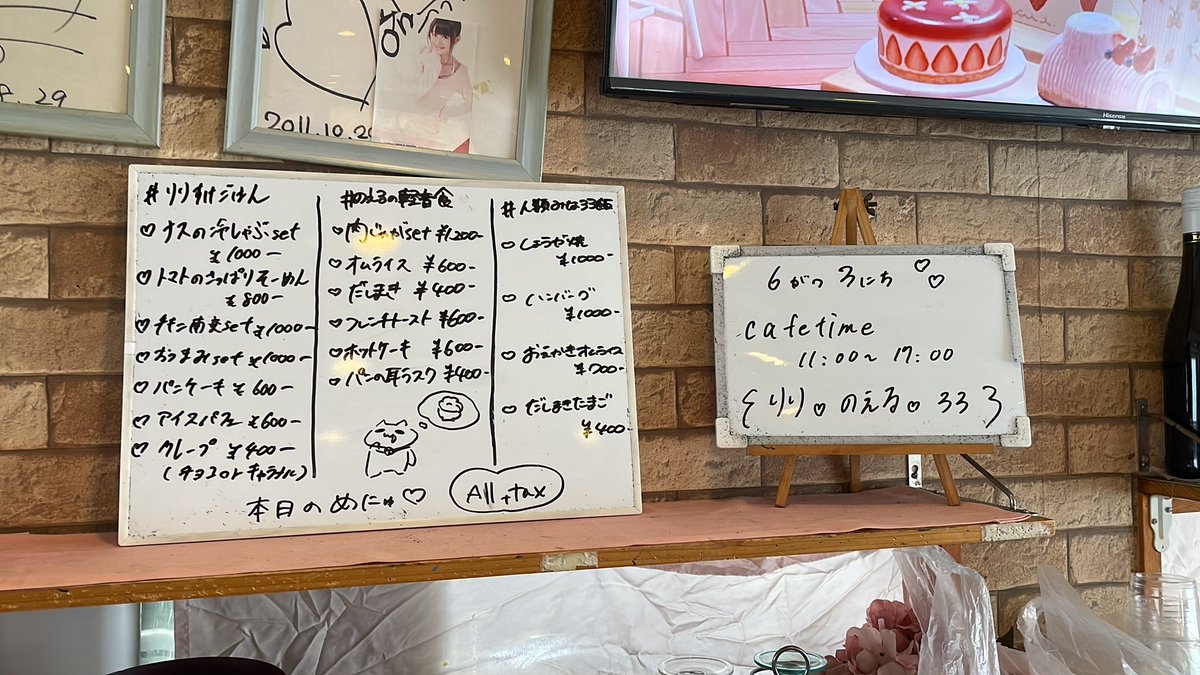 2011.10.29
Hisense
#リリ的ごはん
♡ ナスの冷しゃぶset
¥1000-
♡ トマトのさっぱりそーめん
¥800-
♡ チキン南蛮set ¥1000-
♡ おつまみset ¥1000-
♡ パンケーキ ¥600-
♡ アイスパフェ ¥600-
♡ クレープ ¥400-
(チョコorキャラメル)
#のえるの軽食
♡ 肉じゃがset ¥1200-
♡ オムライス ¥600-
♡ だしまき ¥400-
♡ フレンチトースト ¥600-
♡ ホットケーキ ¥600-
♡ パンの耳ラスク ¥400-
#人類みな33飯
♡ しょうが焼
¥1000-
♡ ハンバーグ
¥1000-
♡ おえかきオムライス
¥700-
♡ だしまきたまご
¥400-
本日のめにゅ♡
All +tax
6がつ3にち ♡♡
cafetime
11:00~17:00
{ リリ♡ のえる♡ 33 }